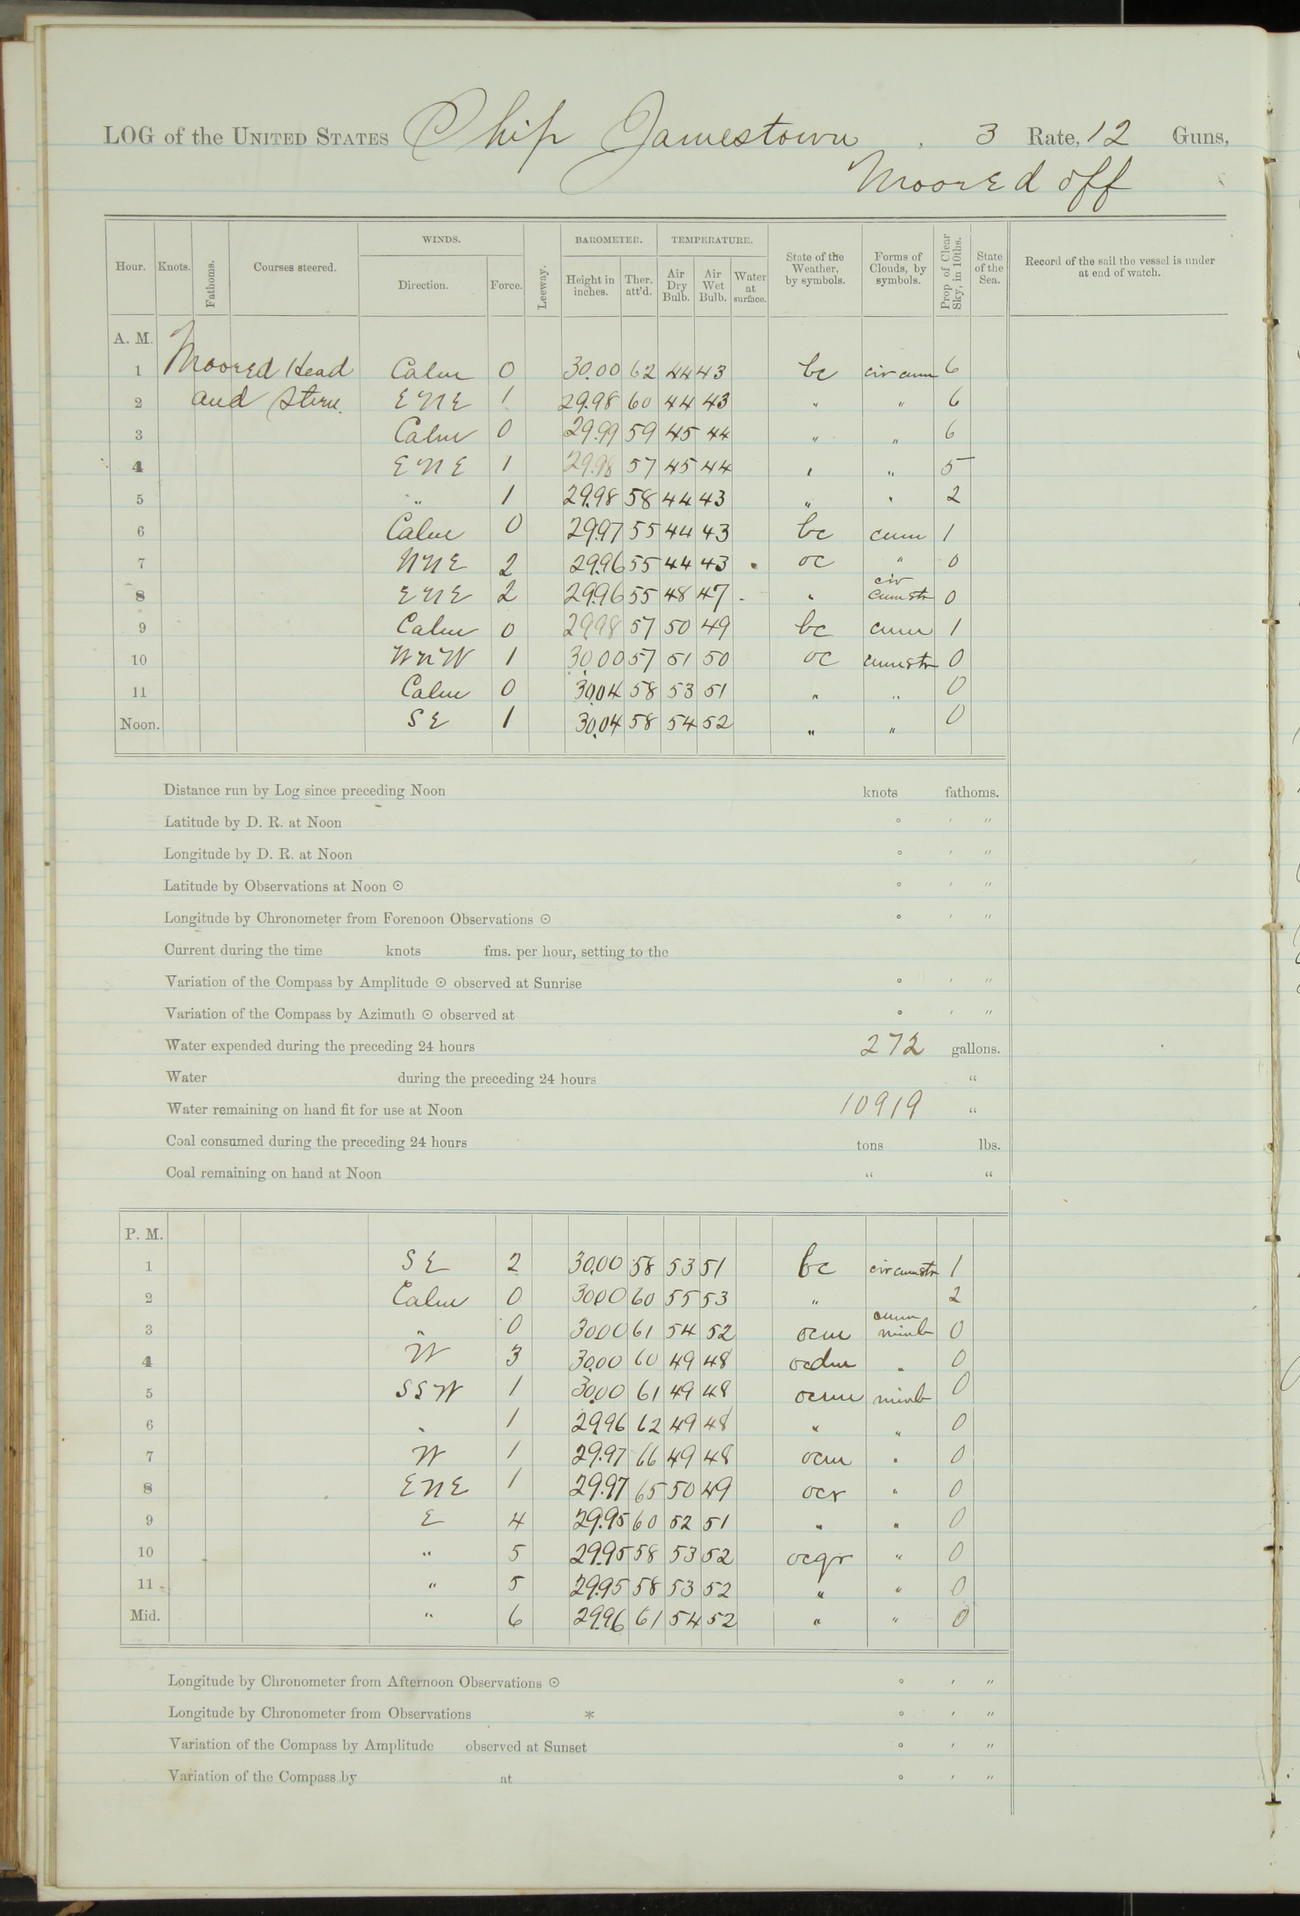 LOG of the UNITED STATES Ship Jamestown, 3 Rate, 12 Guns,
Moored off
Hour. Knots. Fathoms. Courses steered. WINDS. Direction. Force. Leeway. BAROMETER. Height in inches. Ther. att'd. TEMPERATURE. Air Dry Bulb. Air Wet Bulb. Water at surface. State of the Weather, by symbols. Forms of Clouds, by symbols. Prop of Clear Sky, in 10ths. State of the Sea. Record of the sail the vessel is under at end of watch.
A. M.
1 Moored Head Calm 0 30.00 62 44 43 bc cir cum 6
2 and Stern. ENE 1 29.98 60 44 43 " " 6
3 Calm 0 29.99 59 45 44 " " 6
4 ENE 1 29.98 57 45 44 " " 5
5 " 1 29.98 58 44 43 " " 2
6 Calm 0 29.97 55 44 43 bc cum 1
7 NNE 2 29.96 55 44 43 oc " 0
8 ENE 2 29.96 55 48 47 " cir cumstr 0
9 Calm 0 29.98 57 50 49 bc cum 1
10 WNW 1 30.00 57 51 50 oc cumstr 0
11 Calm 0 30.04 58 53 51 " " 0
Noon. SE 1 30.04 58 54 52 " " 0
Distance run by Log since preceding Noon knots fathoms.
Latitude by D. R. at Noon ° ′ ″
Longitude by D. R. at Noon ° ′ ″
Latitude by Observations at Noon ☉ ° ′ ″
Longitude by Chronometer from Forenoon Observations ☉ ° ′ ″
Current during the time knots fms. per hour, setting to the
Variation of the Compass by Amplitude ☉ observed at Sunrise ° ′ ″
Variation of the Compass by Azimuth ☉ observed at ° ′ ″
Water expended during the preceding 24 hours 272 gallons.
Water during the preceding 24 hours "
Water remaining on hand fit for use at Noon 10919 "
Coal consumed during the preceding 24 hours tons lbs.
Coal remaining on hand at Noon " "
P. M.
1 SE 2 30.00 58 53 51 bc cir cumstr 1
2 Calm 0 30.00 60 55 53 " 2
3 " 0 30.00 61 54 52 ocm cum nimb 0
4 W 3 30.00 60 49 48 ocdm " 0
5 SSW 1 30.00 61 49 48 ocmr nimb 0
6 " 1 29.96 62 49 48 " " 0
7 W 1 29.97 66 49 48 ocm " 0
8 ENE 1 29.97 65 50 49 ocr " 0
9 E 4 29.95 60 52 51 " " 0
10 " 5 29.95 58 53 52 ocqr " 0
11 " 5 29.95 58 53 52 " " 0
Mid. " 6 29.96 61 54 52 " " 0
Longitude by Chronometer from Afternoon Observations ☉ ° ′ ″
Longitude by Chronometer from Observations * ° ′ ″
Variation of the Compass by Amplitude observed at Sunset ° ′ ″
Variation of the Compass by at ° ′ ″